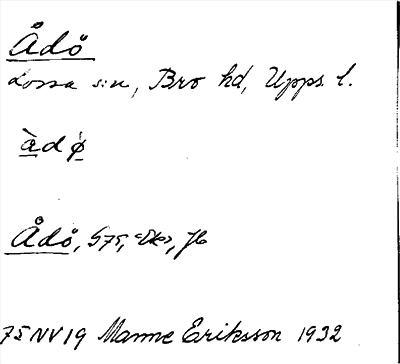 Ådö
Lossa sn, Bro hd, Upps. l.
àdø
Ådö, G75, Ek, Jb
75 NV 19 Manne Eriksson 1932